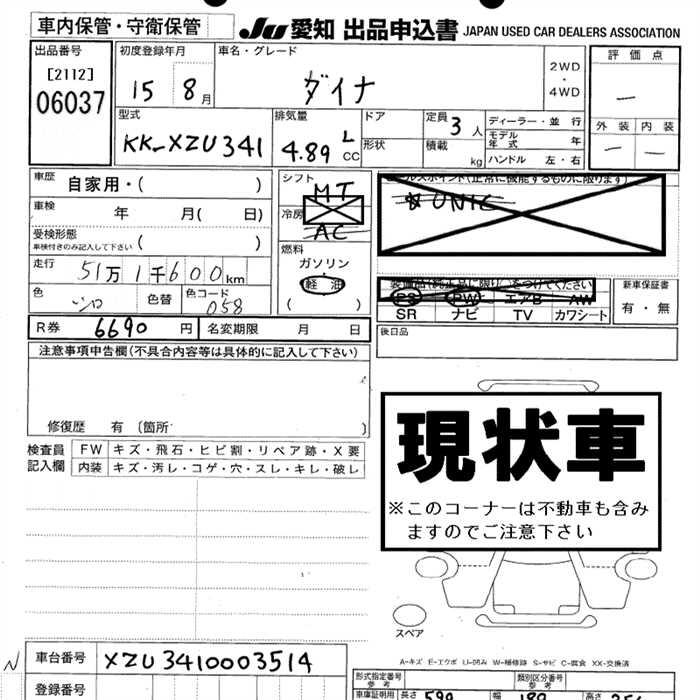 車内保管・守衛保管
JU 愛知 出品申込書 JAPAN USED CAR DEALERS ASSOCIATION
出品番号
[2112]
06037
初度登録年月
15 8月
車名・グレード
ダイナ
2WD
・
4WD
評価点
—
外装 内装
— —
型式
KK-XZU341
排気量
4.89 L
CC
ドア
形状
定員 3人
積載 kg
ディーラー・並行
モデル年式 年
ハンドル 左・右
車歴 自家用・( )
車検 年 月( 日)
受検形態
車検付きのみ記入して下さい ( )
走行 51万1千600km
色 シロ 色替 色コード 058
R券 6690円 名変期限 月 日
シフト
MT
冷房
AC
燃料
ガソリン
軽油
( )
セールスポイント(正常に機能するものに限ります)
UNIC
装備品(純正品に限り)○をつけてください
PS PW エアB AW
SR ナビ TV カワシート
新車保証書
有・無
後日品
注意事項申告欄(不具合内容等は具体的に記入して下さい)
修復歴 有 〔箇所 〕
検査員
記入欄
FW キズ・飛石・ヒビ割・リペア跡・X要
内装 キズ・汚レ・コゲ・穴・スレ・キレ・破レ
現状車
※このコーナーは不動車も含み
ますのでご注意下さい
スペア
A-キズ E-エクボ U-凹み W-補修跡 S-サビ C-腐食 XX-交換済
N
車台番号 XZU3410003514
登録番号
形式指定番号
参考
類別区分番号
参考
車庫証明用 長さ 599 幅 189 高さ